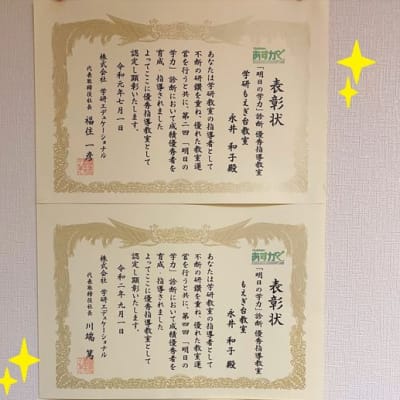 あすがく
表彰状
「明日の学力」診断 優秀指導教室
学研もえぎ台教室
永井 和子殿
あなたは学研教室の指導者として
不断の研鑽を重ね、優れた教室運
営を行うと共に、第二回「明日の
学力」診断において成績優秀者を
育成・指導されました
よってここに優秀指導教室として
認定し顕彰いたします
令和元年七月一日
株式会社 学研エデュケーショナル
代表取締役社長 福住 一彦
あすがく
表彰状
「明日の学力」診断 優秀指導教室
もえぎ台教室
永井 和子殿
あなたは学研教室の指導者として
不断の研鑽を重ね、優れた教室運
営を行うと共に、第四回「明日の
学力」診断において成績優秀者を
育成・指導されました
よってここに優秀指導教室として
認定し顕彰いたします
令和二年九月一日
株式会社 学研エデュケーショナル
代表取締役社長 川端 篤